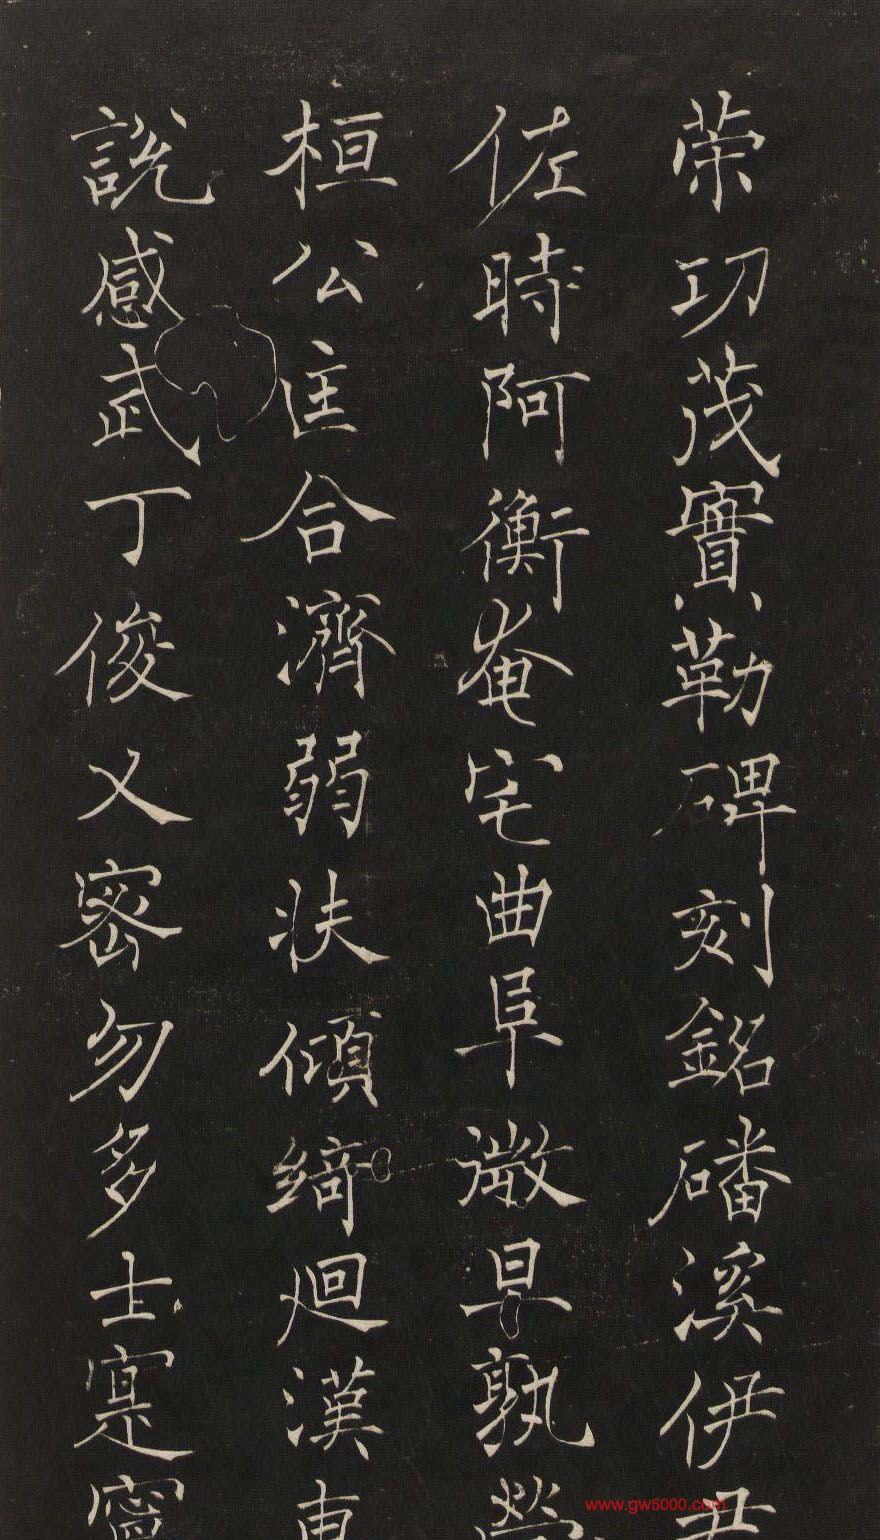 荣功茂實勒碑刻銘磻溪伊尹
佐時阿衡奄宅曲阜微旦孰營
桓公匡合濟弱扶傾綺迴漢惠
說感武丁俊乂密勿多士寔寧